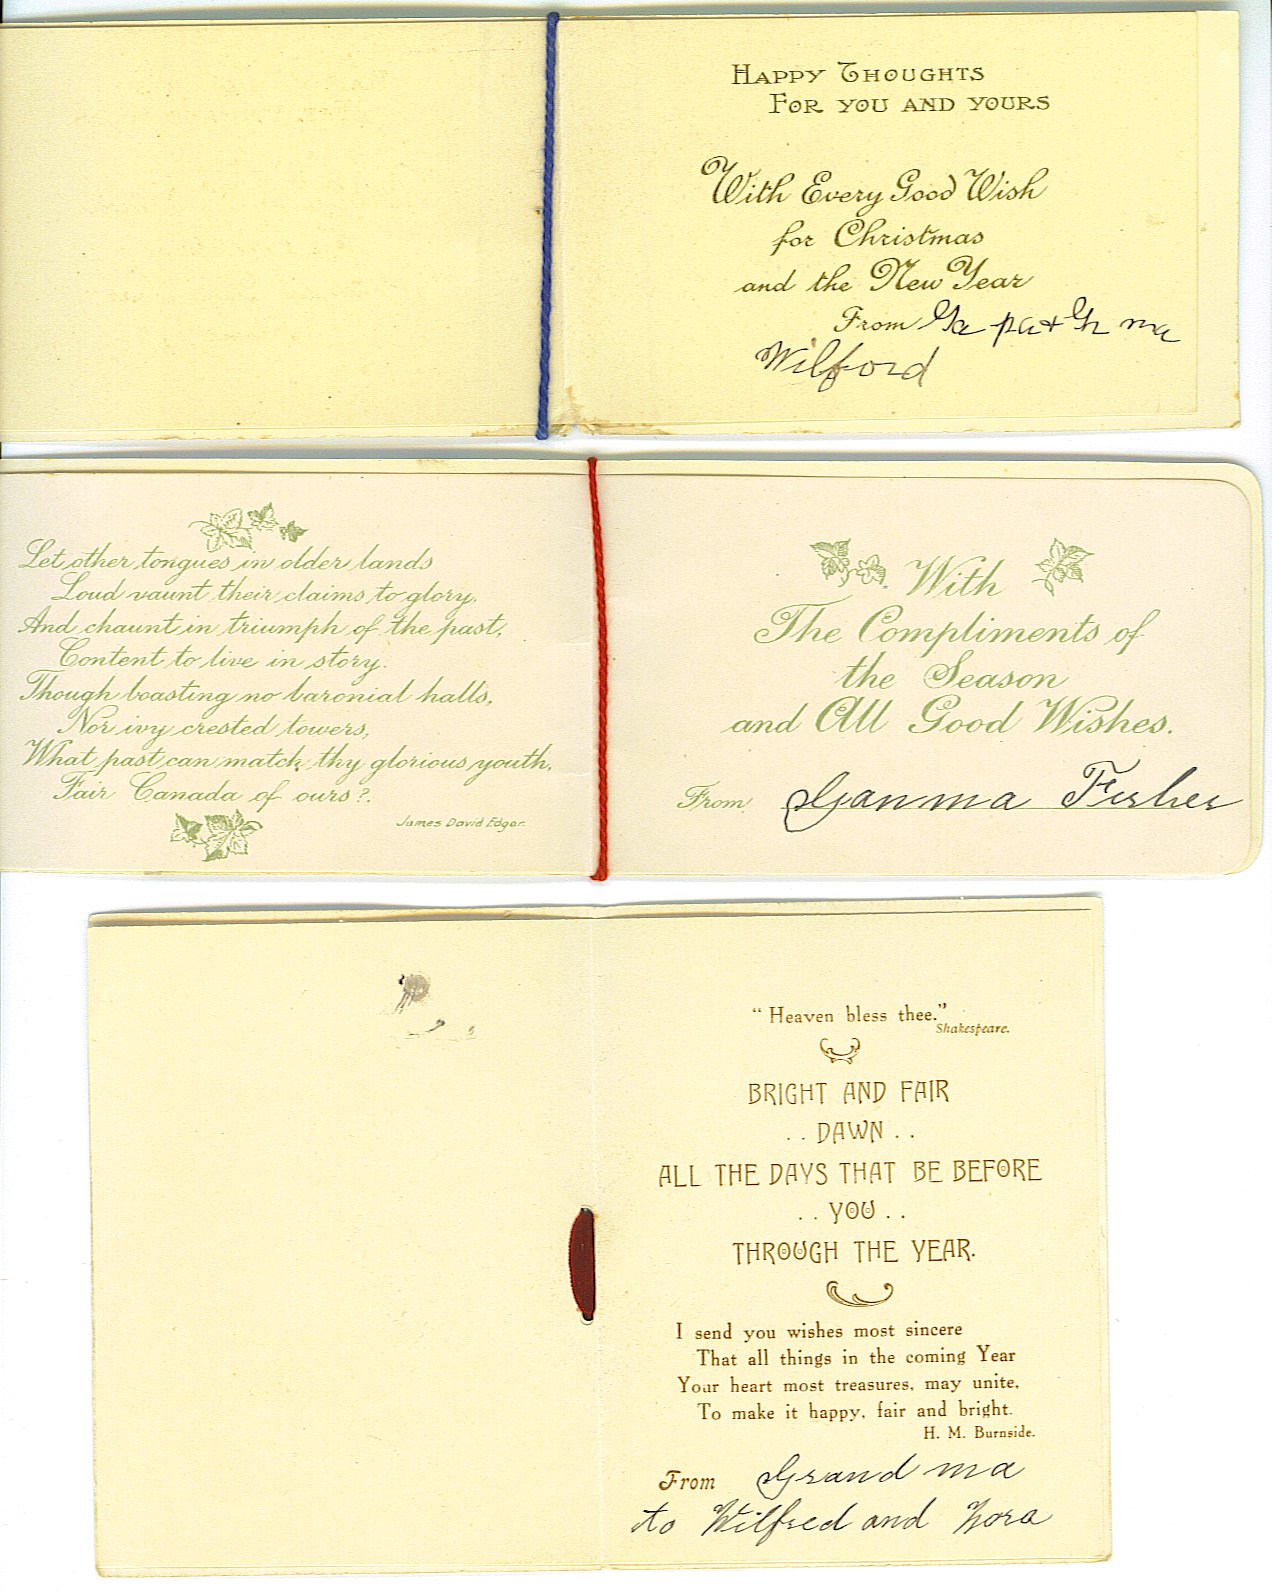 HAPPY THOUGHTS
FOR YOU AND YOURS
With Every Good Wish
for Christmas
and the New Year
From Ga pa + Gr ma
Wilford
Let other tongues in older lands
Loud vaunt their claims to glory,
And chaunt in triumph of the past,
Content to live in story.
Though boasting no baronial halls,
Nor ivy crested towers,
What past can match thy glorious youth,
Fair Canada of ours?.
James David Edgar.
With
The Compliments of
the Season
and All Good Wishes.
From Ganma Fisher
"Heaven bless thee."
Shakespeare.
BRIGHT AND FAIR
. . DAWN . .
ALL THE DAYS THAT BE BEFORE
. . YOU . .
THROUGH THE YEAR.
I send you wishes most sincere
That all things in the coming Year
Your heart most treasures, may unite,
To make it happy, fair and bright.
H. M. Burnside.
From Grandma
to Wilfred and Nora